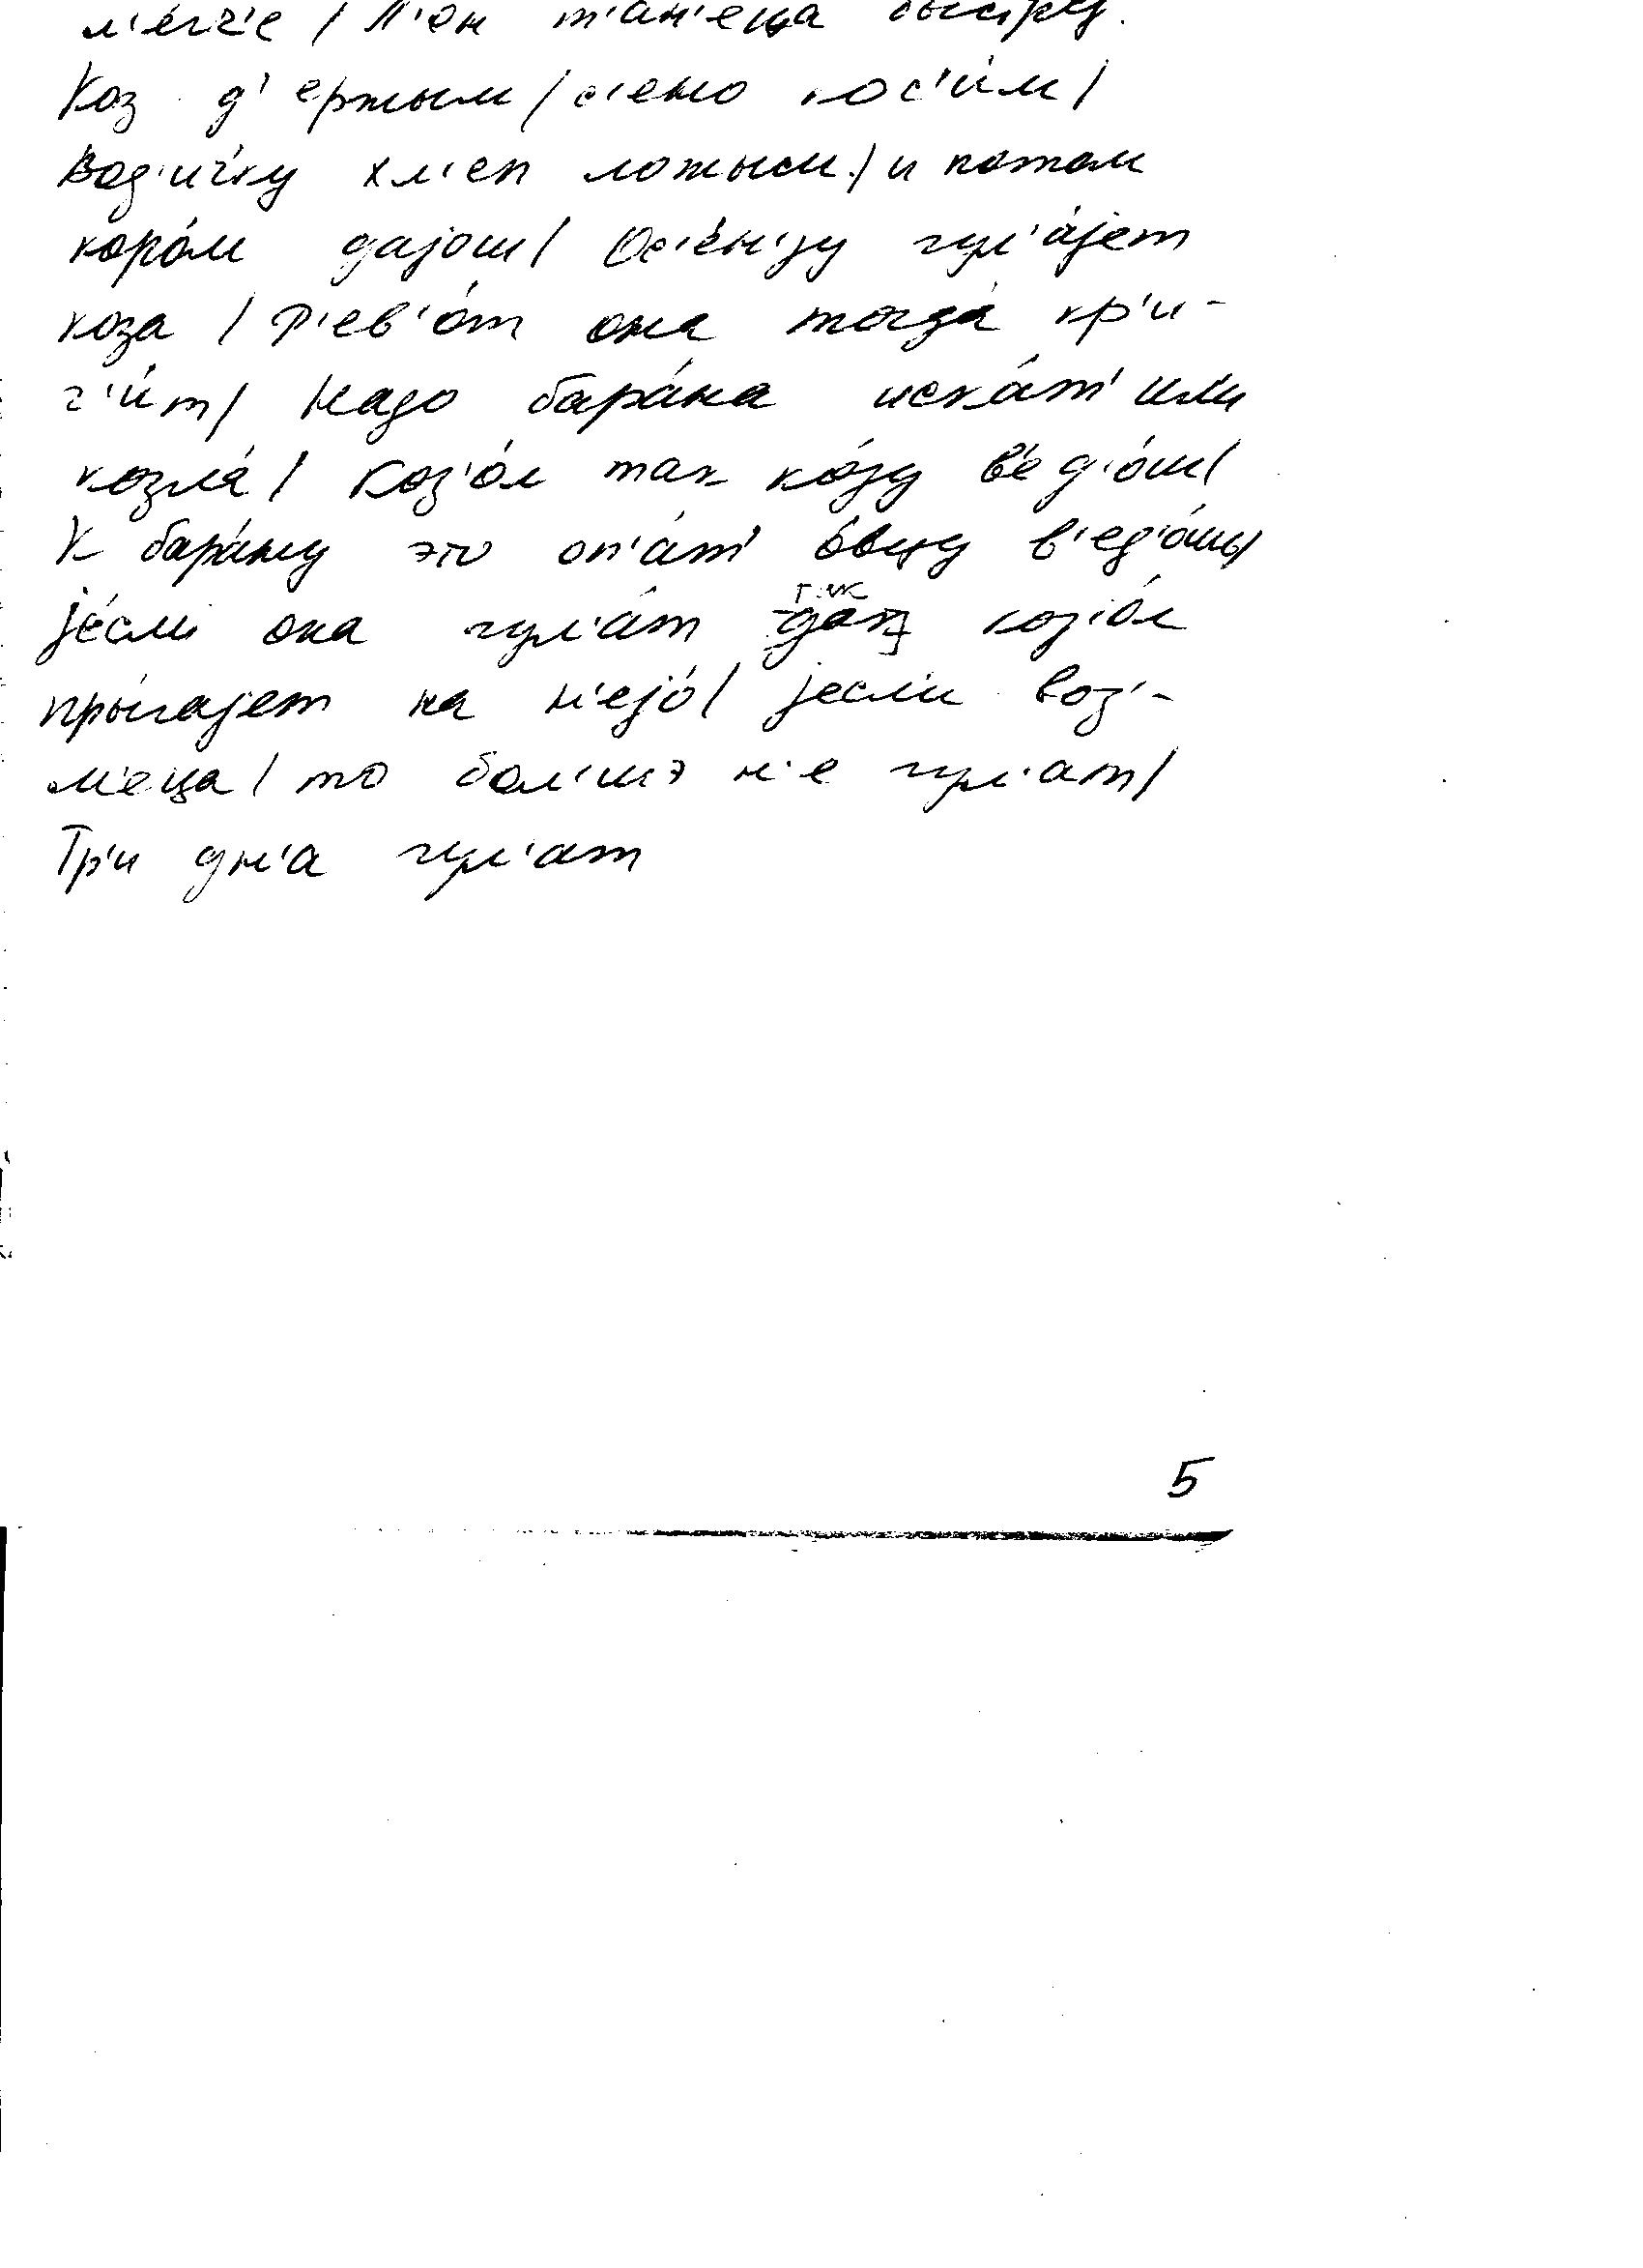 л'е́гч'е / Л'он т'ан'еца быстр
Коз д'ержым / с'ено кос'и́м /
Вод'ичку хл'еп ложым / и потом
коро́м дајош / Ос'е́н'ју гул'а́јет
коза / Р'ев'о́т она тогда́ кр'и-
ч'и́т / Надо бара́на иска́т' или
козла́ / Коз'о́л так ко́зу в'ед'о́ш /
К бара́ну это оп'а́т' о́вцу в'ед'о́ш /
је́сли она гул'а́т так коз'о́л
пры́гајет на н'ејо́ / јесли воз'-
м'еца / то бол'шэ н'е гул'ат /
Тр'и дн'а гул'ат
5